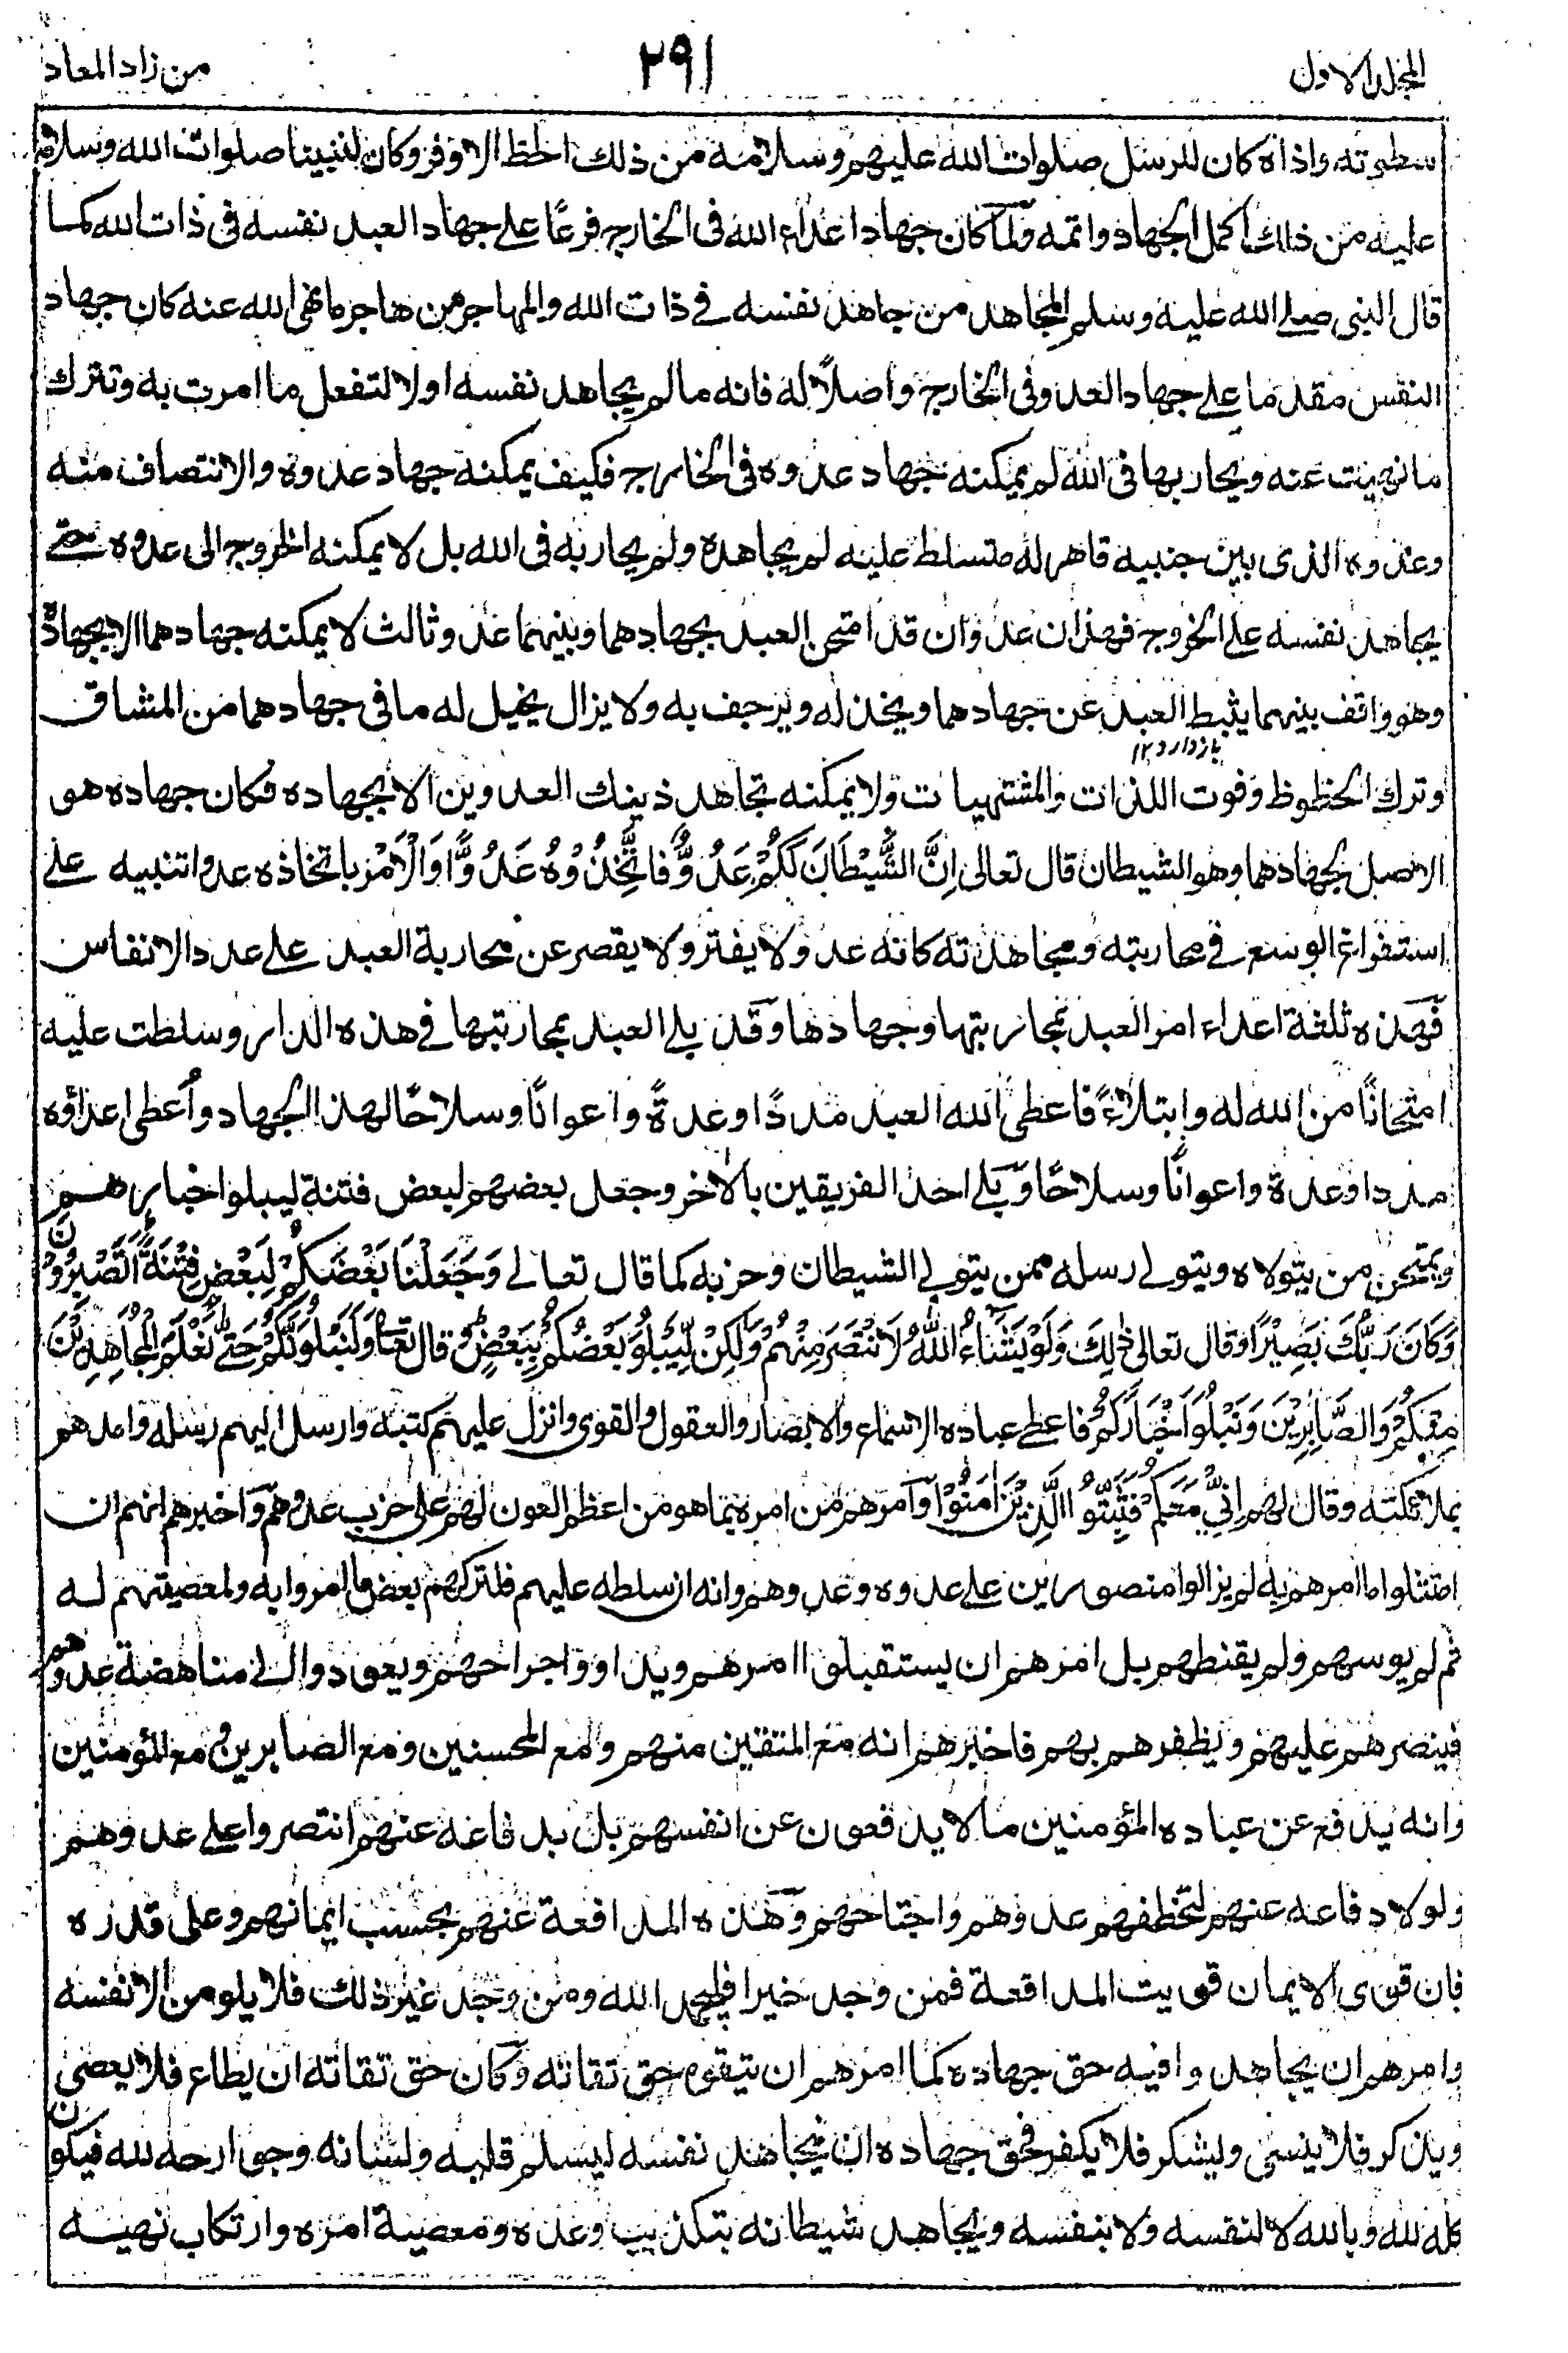 المجلد الاول
٢٩١
من زاد المعاد
سطوته واذاه كان للرسل صلوات الله عليهم وسلامه من ذلك الحظ الاوفر وكان لنبينا صلوات الله وسلامه
عليه من ذلك اكمل الجهاد واتمه ولما كان جهاد اعداء الله في الخارج فرعًا على جهاد العبد نفسه في ذات الله كما
قال النبي صلى الله عليه وسلم المجاهد من جاهد نفسه في ذات الله والمهاجر من هاجر ما نهى الله عنه كان جهاد
النفس مقدما على جهاد العدو في الخارج واصلًا له فانه ما لم يجاهد نفسه اولا لتفعل ما امرت به وتترك
ما نهيت عنه ويحاربها في الله لم يمكنه جهاد عدوه في الخارج فكيف يمكنه جهاد عدوه والانتصاف منه
وعدوه الذى بين جنبيه قاهر له متسلط عليه لم يجاهده ولم يحاربه في الله بل لا يمكنه الخروج الى عدوه حتى
يجاهد نفسه على الخروج فهذان عدوان قد امتحن العبد بجهادهما وبينهما عدو ثالث لا يمكنه جهادهما الا بجهاده
وهو واقف بينهما يثبط العبد عن جهادهما ويخذله ويرجف به ولا يزال يخيل له ما فى جهادهما من المشاق
بازدارد ١٢
وترك الحظوظ وفوت اللذات والمشتهيات ولا يمكنه يجاهد ذينك العدوين الا بجهاده فكان جهاده هو
الاصل لجهادهما وهو الشيطان قال تعالى اِنَّ الشَّيْطَانَ لَكُمْ عَدُوٌّ فَاتَّخِذُوْهُ عَدُوًّا وَالْاَمْر باتخاذه عدوا تنبيه على
استفراغ الوسع في محاربته ومجاهدته كانه عدو لا يفتر ولا يقصر عن محاربة العبد على عدد الانفاس
فهذه ثلثة اعداء امر العبد بمحاربتها وجهادها وقد بلى العبد بمحاربتها في هذه الدار وسلطت عليه
امتحانًا من الله له وابتلاءً فاعطى الله العبد مددًا وعدةً واعوانًا وسلاحًا لهذا الجهاد واُعطى اعداؤه
مددا وعدة واعوانًا وسلاحًا وبلى احد الفريقين بالاخر وجعل بعضهم لبعض فتنة ليبلوا اخبارهم
ويمتحن من يتولاه ويتولى رسله ممن يتولى الشيطان وحزبه كما قال تعالى وَجَعَلْنَا بَعْضَكُمْ لِبَعْضٍ فِتْنَةً اَتَصْبِرُوْنَ
وَكَانَ رَبُّكَ بَصِيْرًا وقال تعالى ذٰلِكَ وَلَوْ يَشَآءُ اللّٰهُ لَانْتَصَرَ مِنْهُمْ وَلٰكِنْ لِّيَبْلُوَ بَعْضَكُمْ بِبَعْضٍ وقال تعا وَلَنَبْلُوَنَّكُمْ حَتّٰى نَعْلَمَ الْمُجَاهِدِيْنَ
مِنْكُمْ وَالصَّابِرِيْنَ وَنَبْلُوَا اَخْبَارَكُمْ فاعطى عباده الاسماع والابصار والعقول والقوى وانزل عليهم كتبه وارسل اليهم رسله وامدهم
بملائكته وقال لهم اِنِّيْ مَعَكُمْ فَثَبِّتُوا الَّذِيْنَ اٰمَنُوْا وامرهم من امره بما هو من اعظم العون لهم على حرب عدوهم واخبرهم انهم ان
امتثلوا ما امرهم به لم يزالوا منصورين على عدوه وعدوهم وانه ان سلطه عليهم فلتركهم بعض ما امروا به ولمعصيتهم له
ثم لم يويسهم ولم يقنطهم بل امرهم ان يستقبلوا امرهم ويداووا جراحهم ويعودوا الى مناهضة عدوهم
فينصرهم عليهم ويظفرهم بهم فاخبرهم انه مع المتقين منهم ومع المحسنين ومع الصابرين ومع المؤمنين
وانه يدفع عن عباده المؤمنين ما لا يدفعون عن انفسهم بل بدفاعه عنهم انتصروا على عدوهم
ولولا دفاعه عنهم لتخطفهم عدوهم واجتاحهم وهذه المدافعة عنهم بحسب ايمانهم وعلى قدره
فان قوى الايمان قويت المدافعة فمن وجد خيرا فليحمد الله ومن وجد غير ذلك فلا يلومن الا نفسه
وامرهم ان يجاهدوا فيه حق جهاده كما امرهم ان يتقوه حق تقاته وكان حق تقاته ان يطاع فلا يعصى
ويذكر فلا ينسى ويشكر فلا يكفر فحق جهاده ان يجاهد نفسه ليسلم قلبه ولسانه وجوارحه لله فيكون
كله لله وبالله لا لنفسه ولا بنفسه ويجاهد شيطانه بتكذيب وعده ومعصية امره وارتكاب نهيه